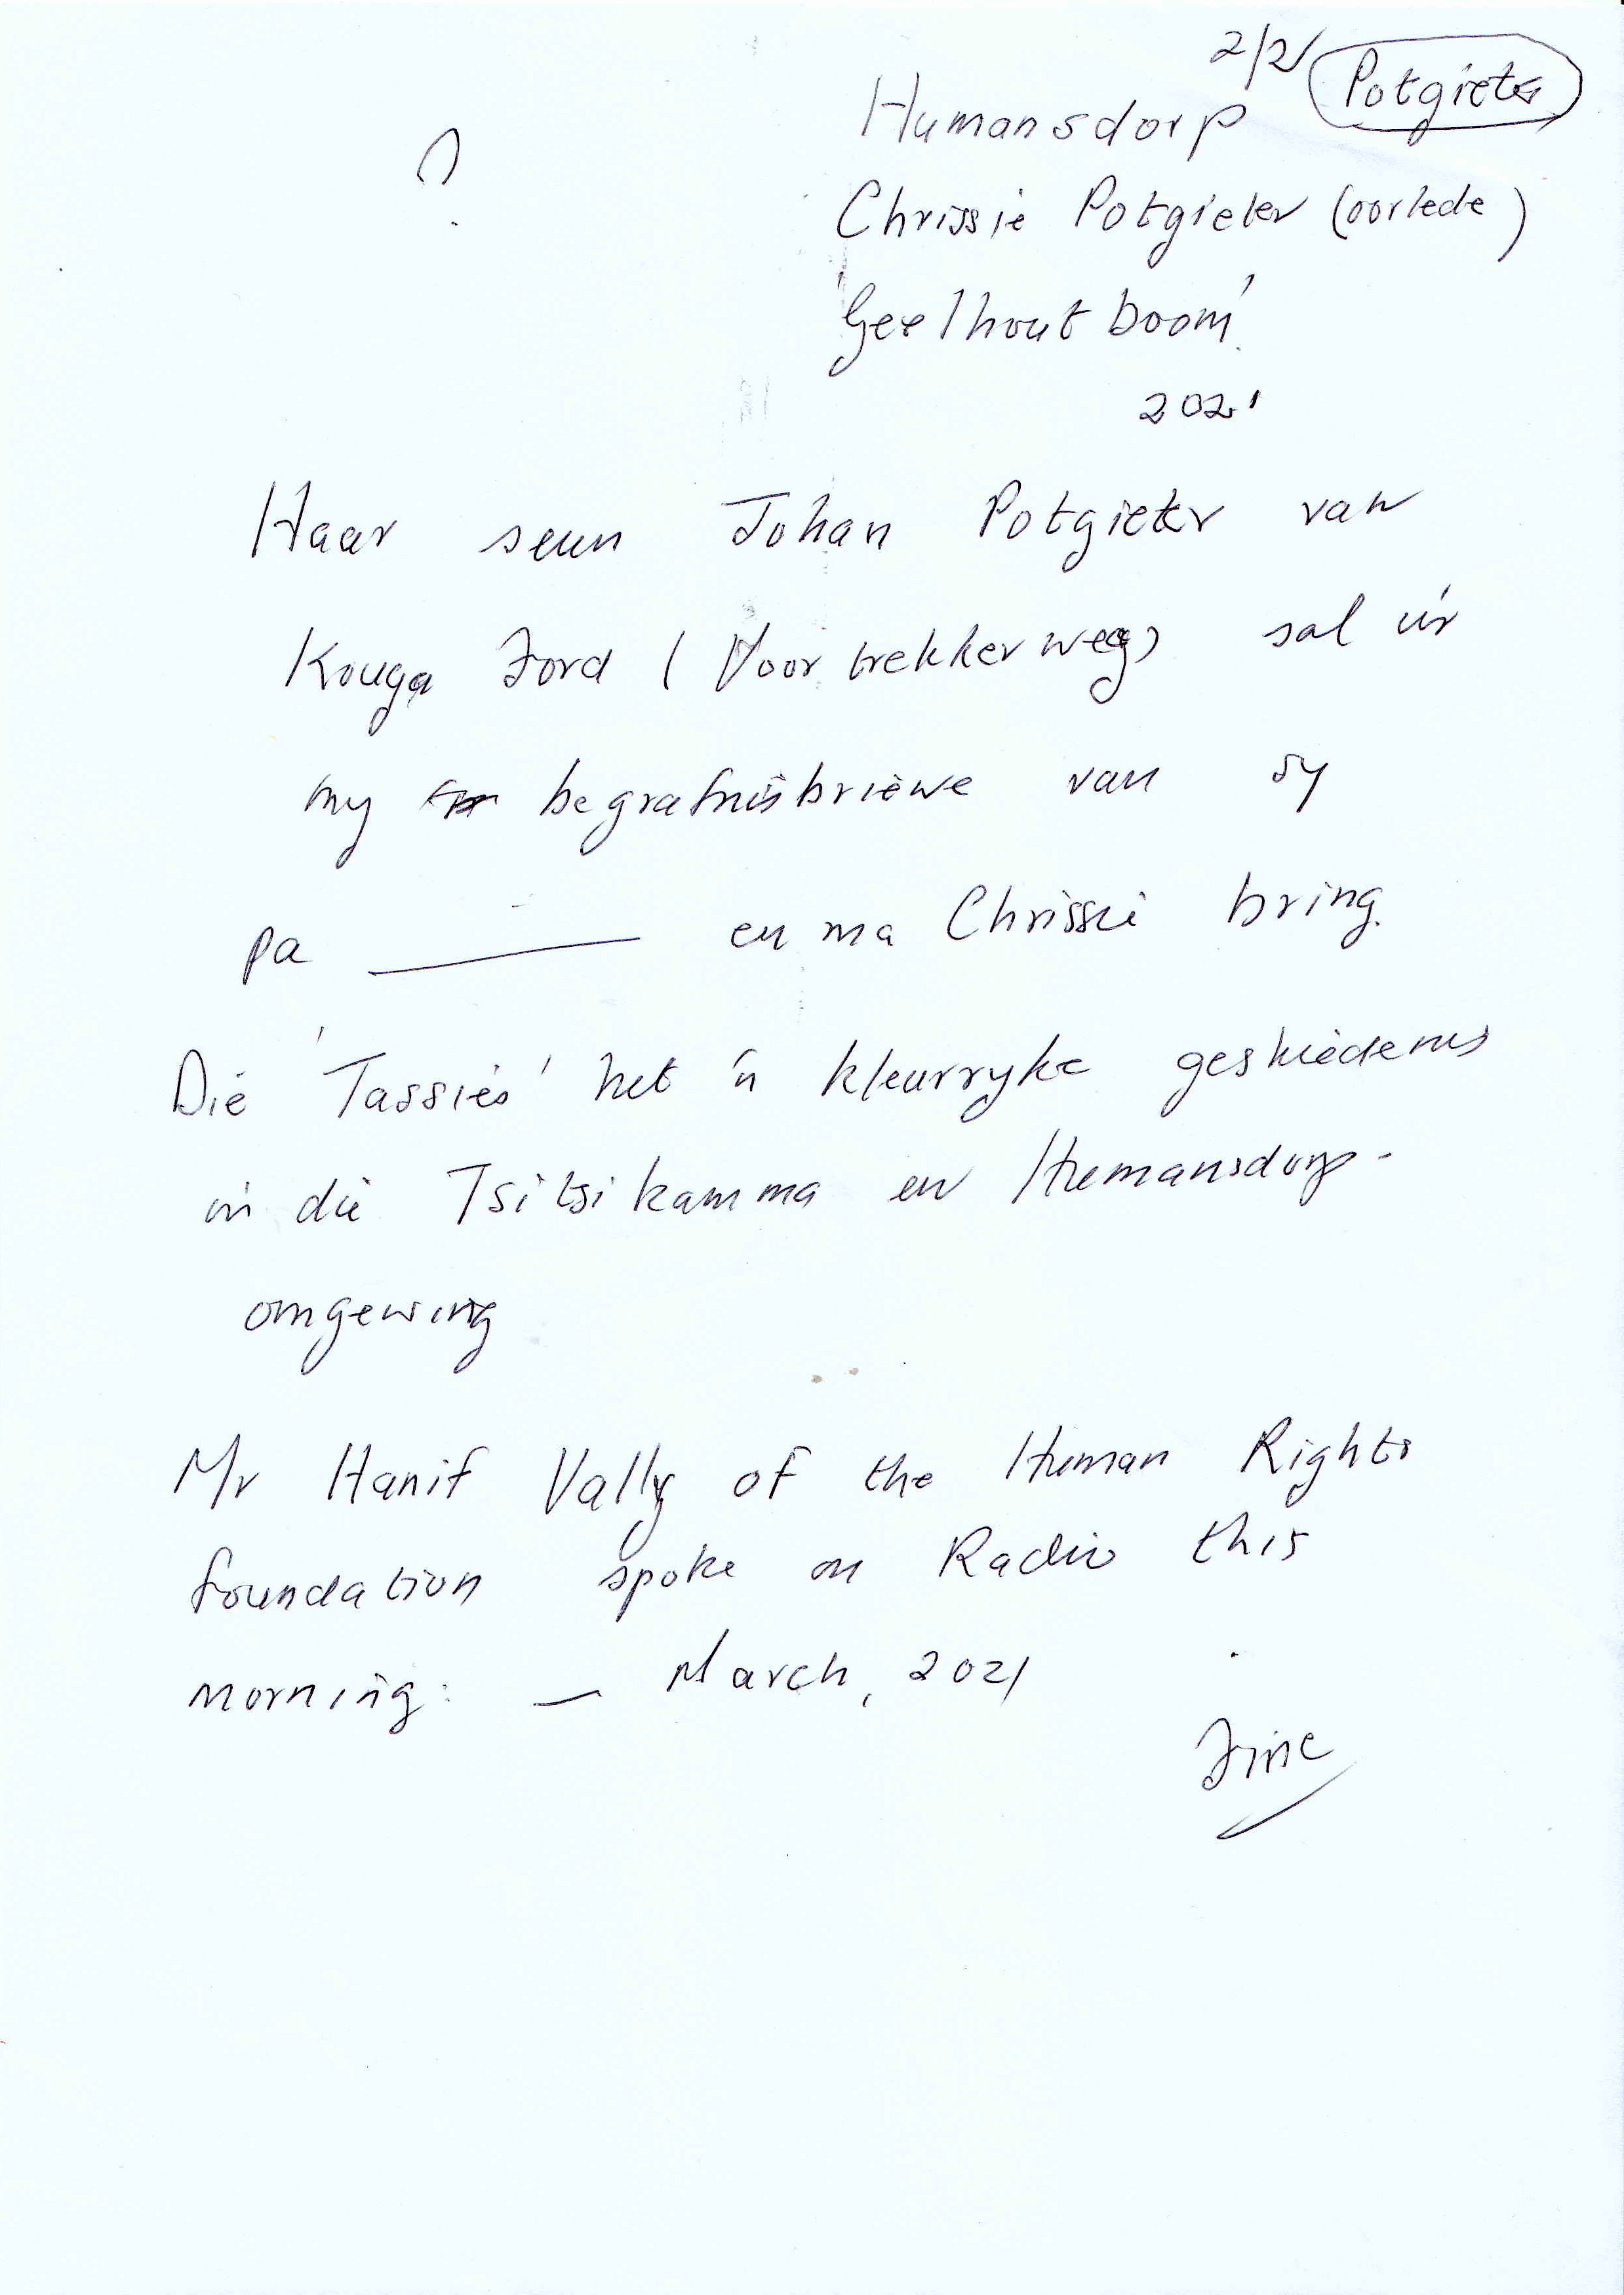 2/2 Potgieter
Humansdorp
?
Chrissie Potgieter (oorlede)
'Geelhoutboom'
2021
Haar seun Johan Potgieter van
Kouga Ford (Voortrekkerweg) sal vir
my begrafnisbriewe van sy
pa ______ en ma Chrissie bring.
Die 'Tassies' het 'n kleurryke geskiedenis
in die Tsitsikamma en Humansdorp-
omgewing
Mr Hanif Vally of the Human Rights
foundation spoke on Radio this
morning: — March, 2021